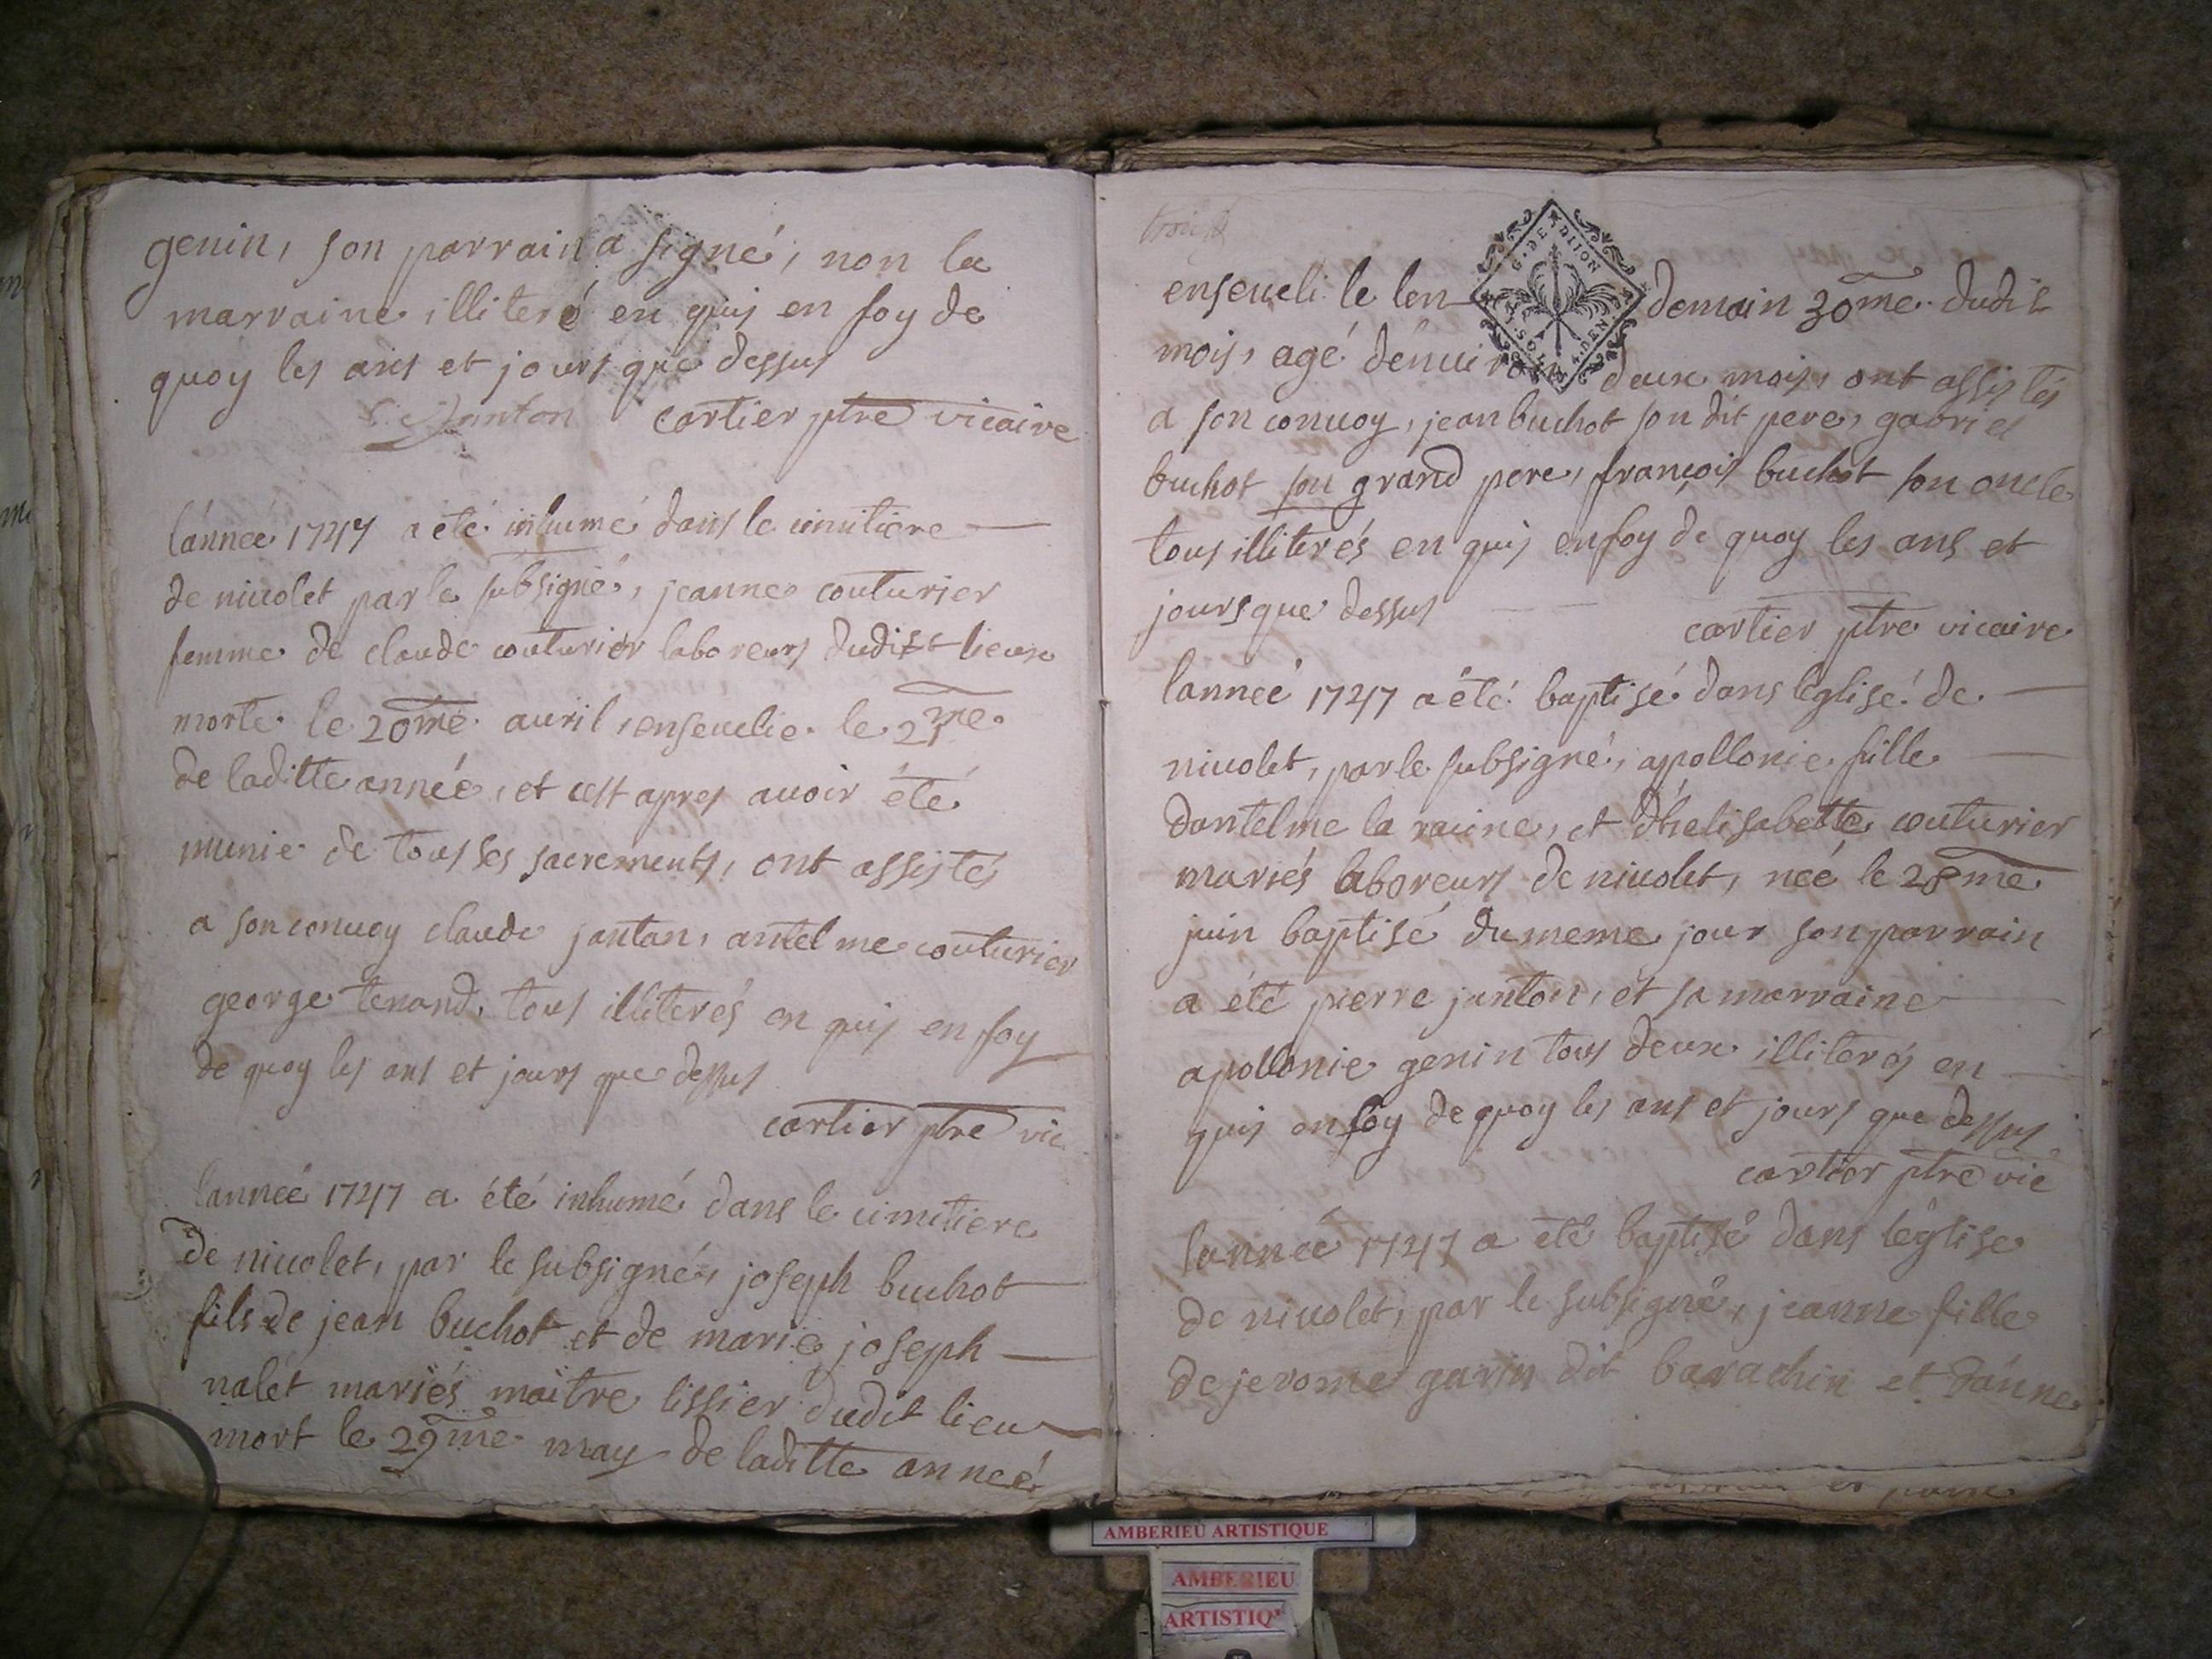 genin, son parrain a signé, non la
marraine illiteré en quis en foy de
quoy les ans et jours que dessus
Janton cartier ptre vicaire
l'année 1747 a été inhumé dans le cimitiere
de nivolet par le subsigné, jeanne couturier
femme de claude couturier laboreurs dudist lieux
morte le 20me auril, enseuelie le 21me
de laditte année, et cest apres auoir été
munie de tous ses sacrements, ont assistés
a son conuoy claude jantan, antelme couturier
george tenand, tous illiterés en quis en foy
de quoy les ans et jours que dessus
cartier ptre vic
lanneé 1747 a été inhumé dans le cimitiere
de niuolet, par le subsigné, joseph buchot
fils de jean buchot et de marie joseph
nalét mariés maitre lissier dudit lieu
mort le 29me may de laditte anneé
enseueli le len demain 30me dudit
mois, agé dénuiron deux mois, ont assistés
a son conuoy, jean buchot son dit pere, gabriel
buchot son grand pere, françois buchot son oncle
tous illiterés en quis en foy de quoy les ans et
jours que dessus
cartier ptre vicaire
lanneé 1747 a été baptisé dans léglisé de
niuolet, par le subsigné, apollonie fille
dantelme la racine, et dhelisabette couturier
mariés laboreurs de niuolet, neé le 28me
juin baptisé du meme jour son parrain
a été pierre janton, et sa marraine
apollonie genin tous deux illiterés en
quis en foy de quoy les ans et jours que dessus
cartier ptre vic
lanneé 1747 a été baptisé dans léglise
de niuolet, par le subsigné, jeanne fille
de jerome garin dit barachin et dánne
G. DE DIJON
4. DEN
SOLS
AMBERIEU ARTISTIQUE
AMBERIEU
ARTISTIQ